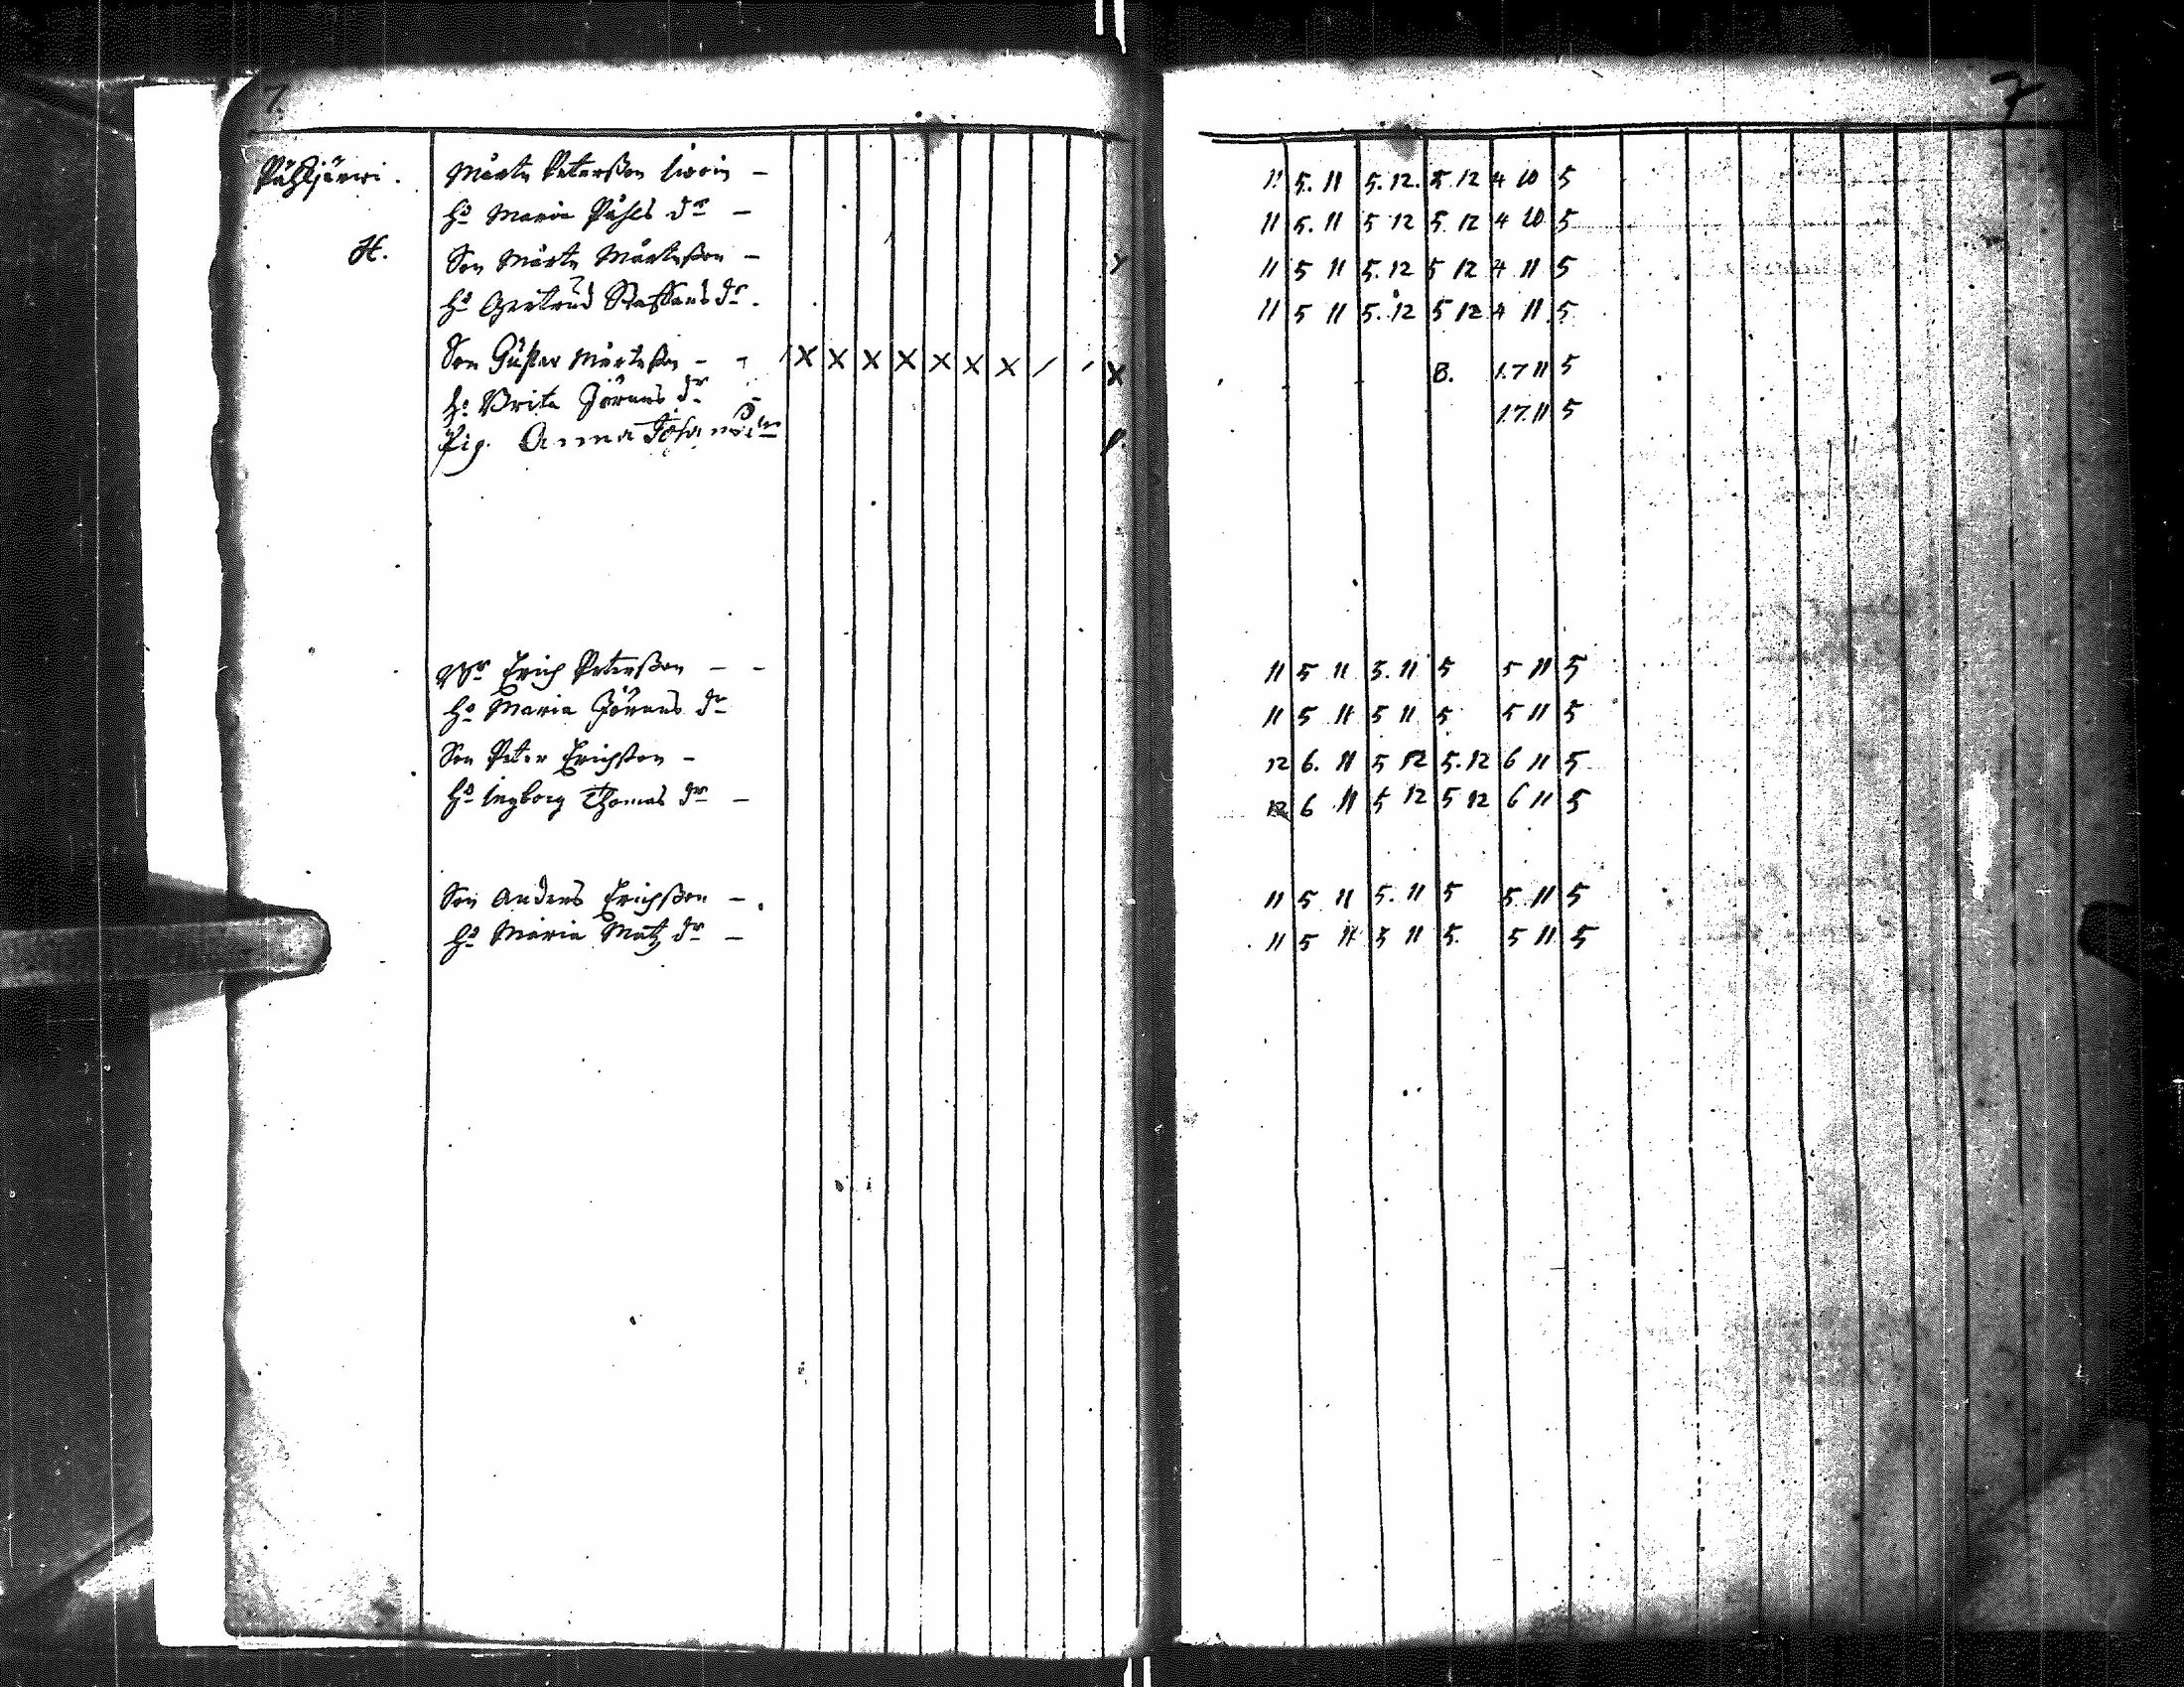 7.
7
Påhljärwi. Mårten Petersson Sivoin – 11 5. 11 5. 12. 5. 12 4 10 5
H. Maria Påhls dr – 11 5. 11 5 12 5. 12 4 10 5
H. Son Mårten Mårtensson – 11 5 11 5. 12 5 12 4 11 5
H. Gertrud Staffans dr. 11 5 11 5. 12 5 12 4 11 5
Son Gustav Mårtensson – – / X X X X X X X / / X B. 1. 7 11 5
H. Brita Jörans dr 1. 7. 11 5
Pig. Anna Johans dr
Br Erich Petersson – – 11 5 11 5. 11 5 5 11 5
H. Maria Jörans dr 11 5 11 5 11 5 5 11 5
Son Peter Erichsson – 12 6. 11 5 12 5. 12 6 11 5
H. Ingborg Thomas dr – 12 6 11 5 12 5 12 6 11 5
Son Anders Erichsson – 11 5 11 5. 11 5 5 11 5
H. Maria Matz dr – 11 5 11 5 11 5. 5 11 5